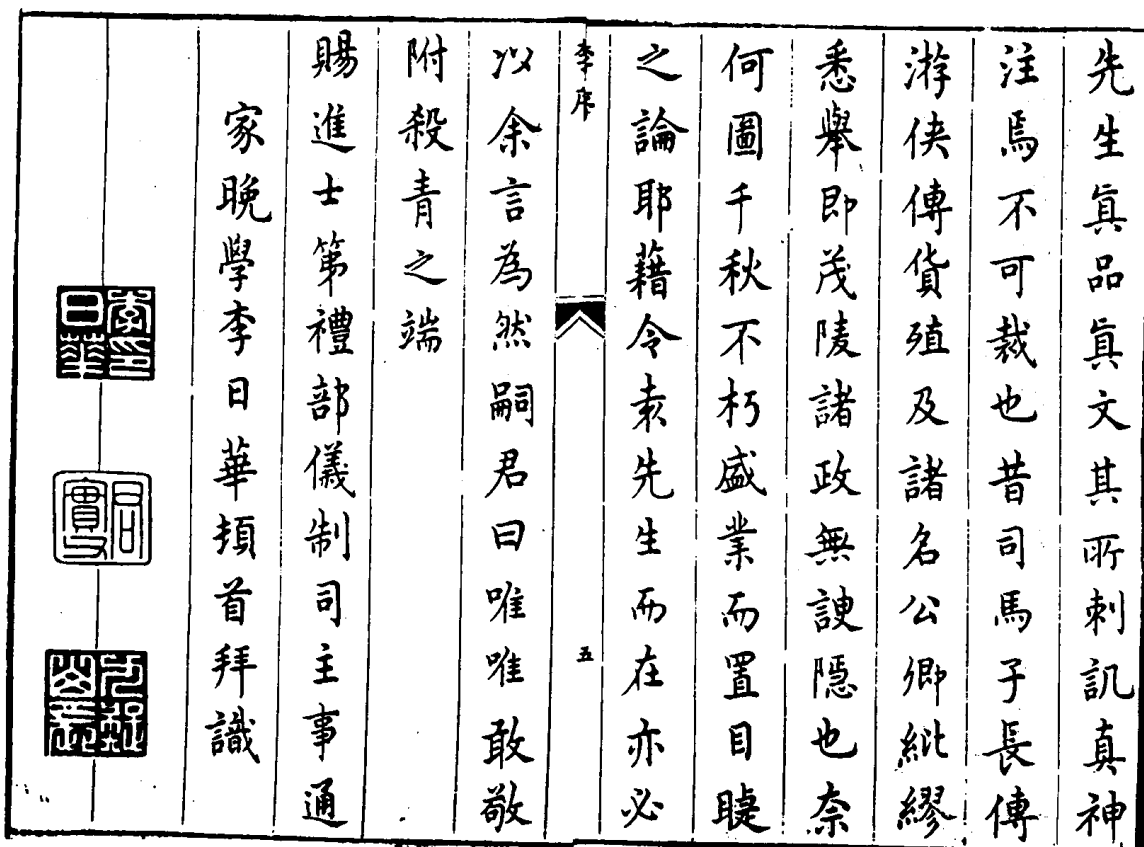 先生眞品眞文其所刺訊真神
注焉不可裁也昔司馬子長傳
游俠傳貨殖及諸名公卿紕繆
悉舉即茂陵諸政無諛隱也奈
何圖千秋不朽盛業而置目睫
之論耶藉令袁先生而在亦必
李序
五
以余言為然嗣君曰唯唯敢敬
附殺青之端
賜進士第禮部儀制司主事通
家晚學李日華頓首拜識
李日華印
君實父